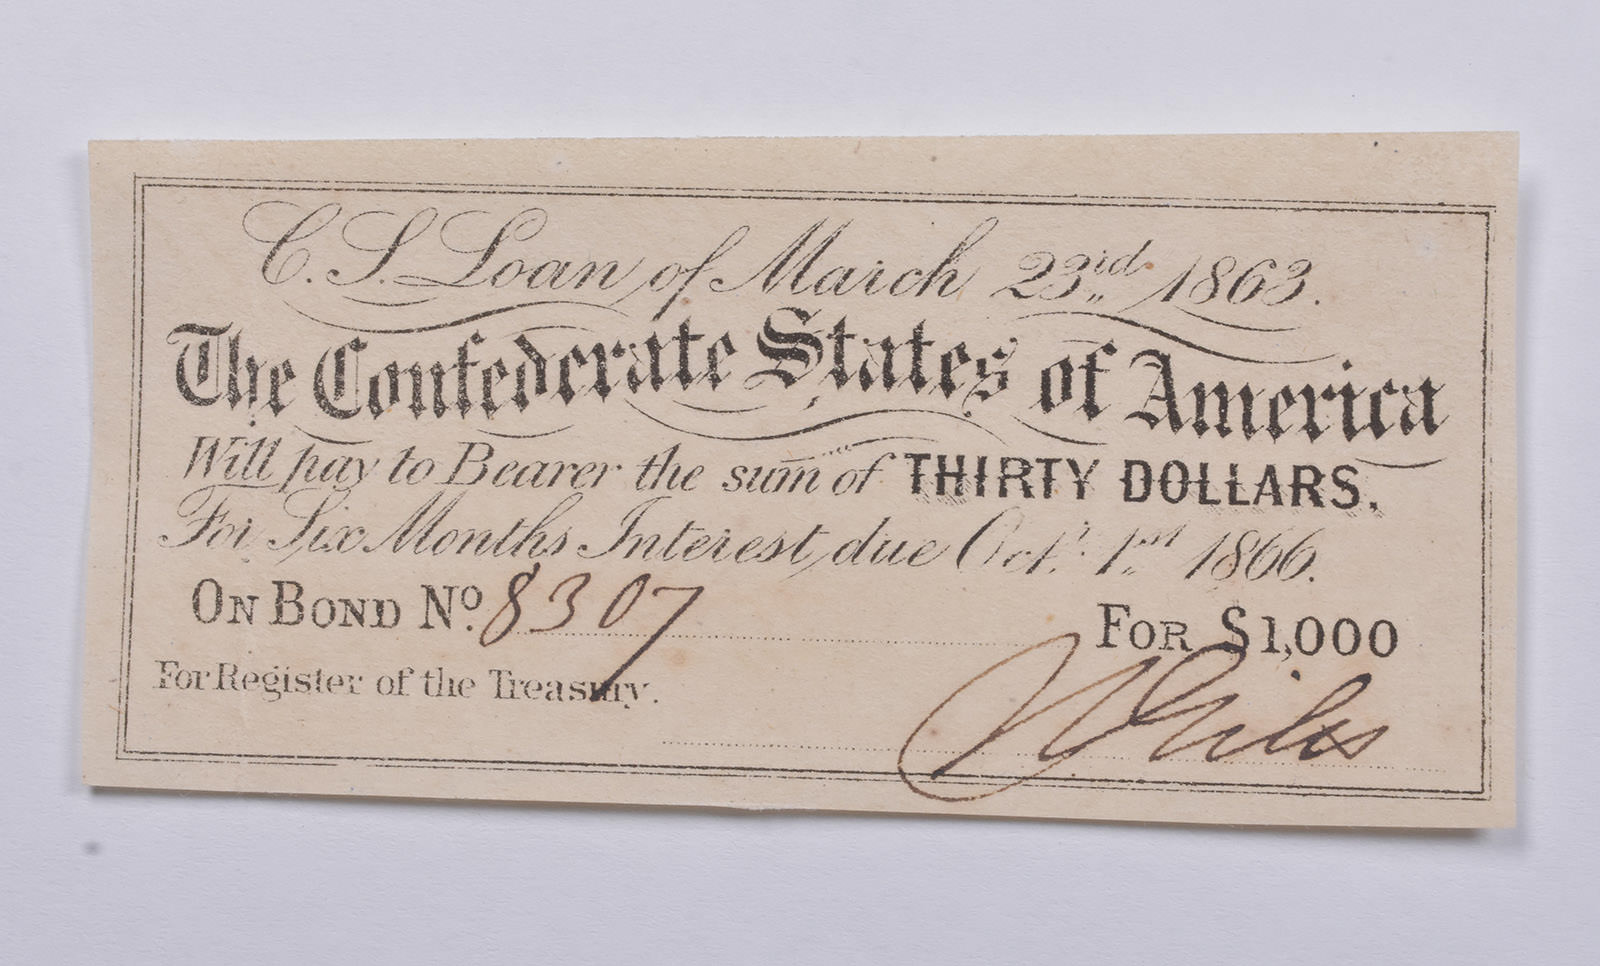 C. S. Loan of March 23rd 1863.
The Confederate States of America
Will pay to Bearer the sum of THIRTY DOLLARS.
For Six Months Interest due Oct. 1st 1866.
ON BOND No. 8307 FOR $1,000
For Register of the Treasury.